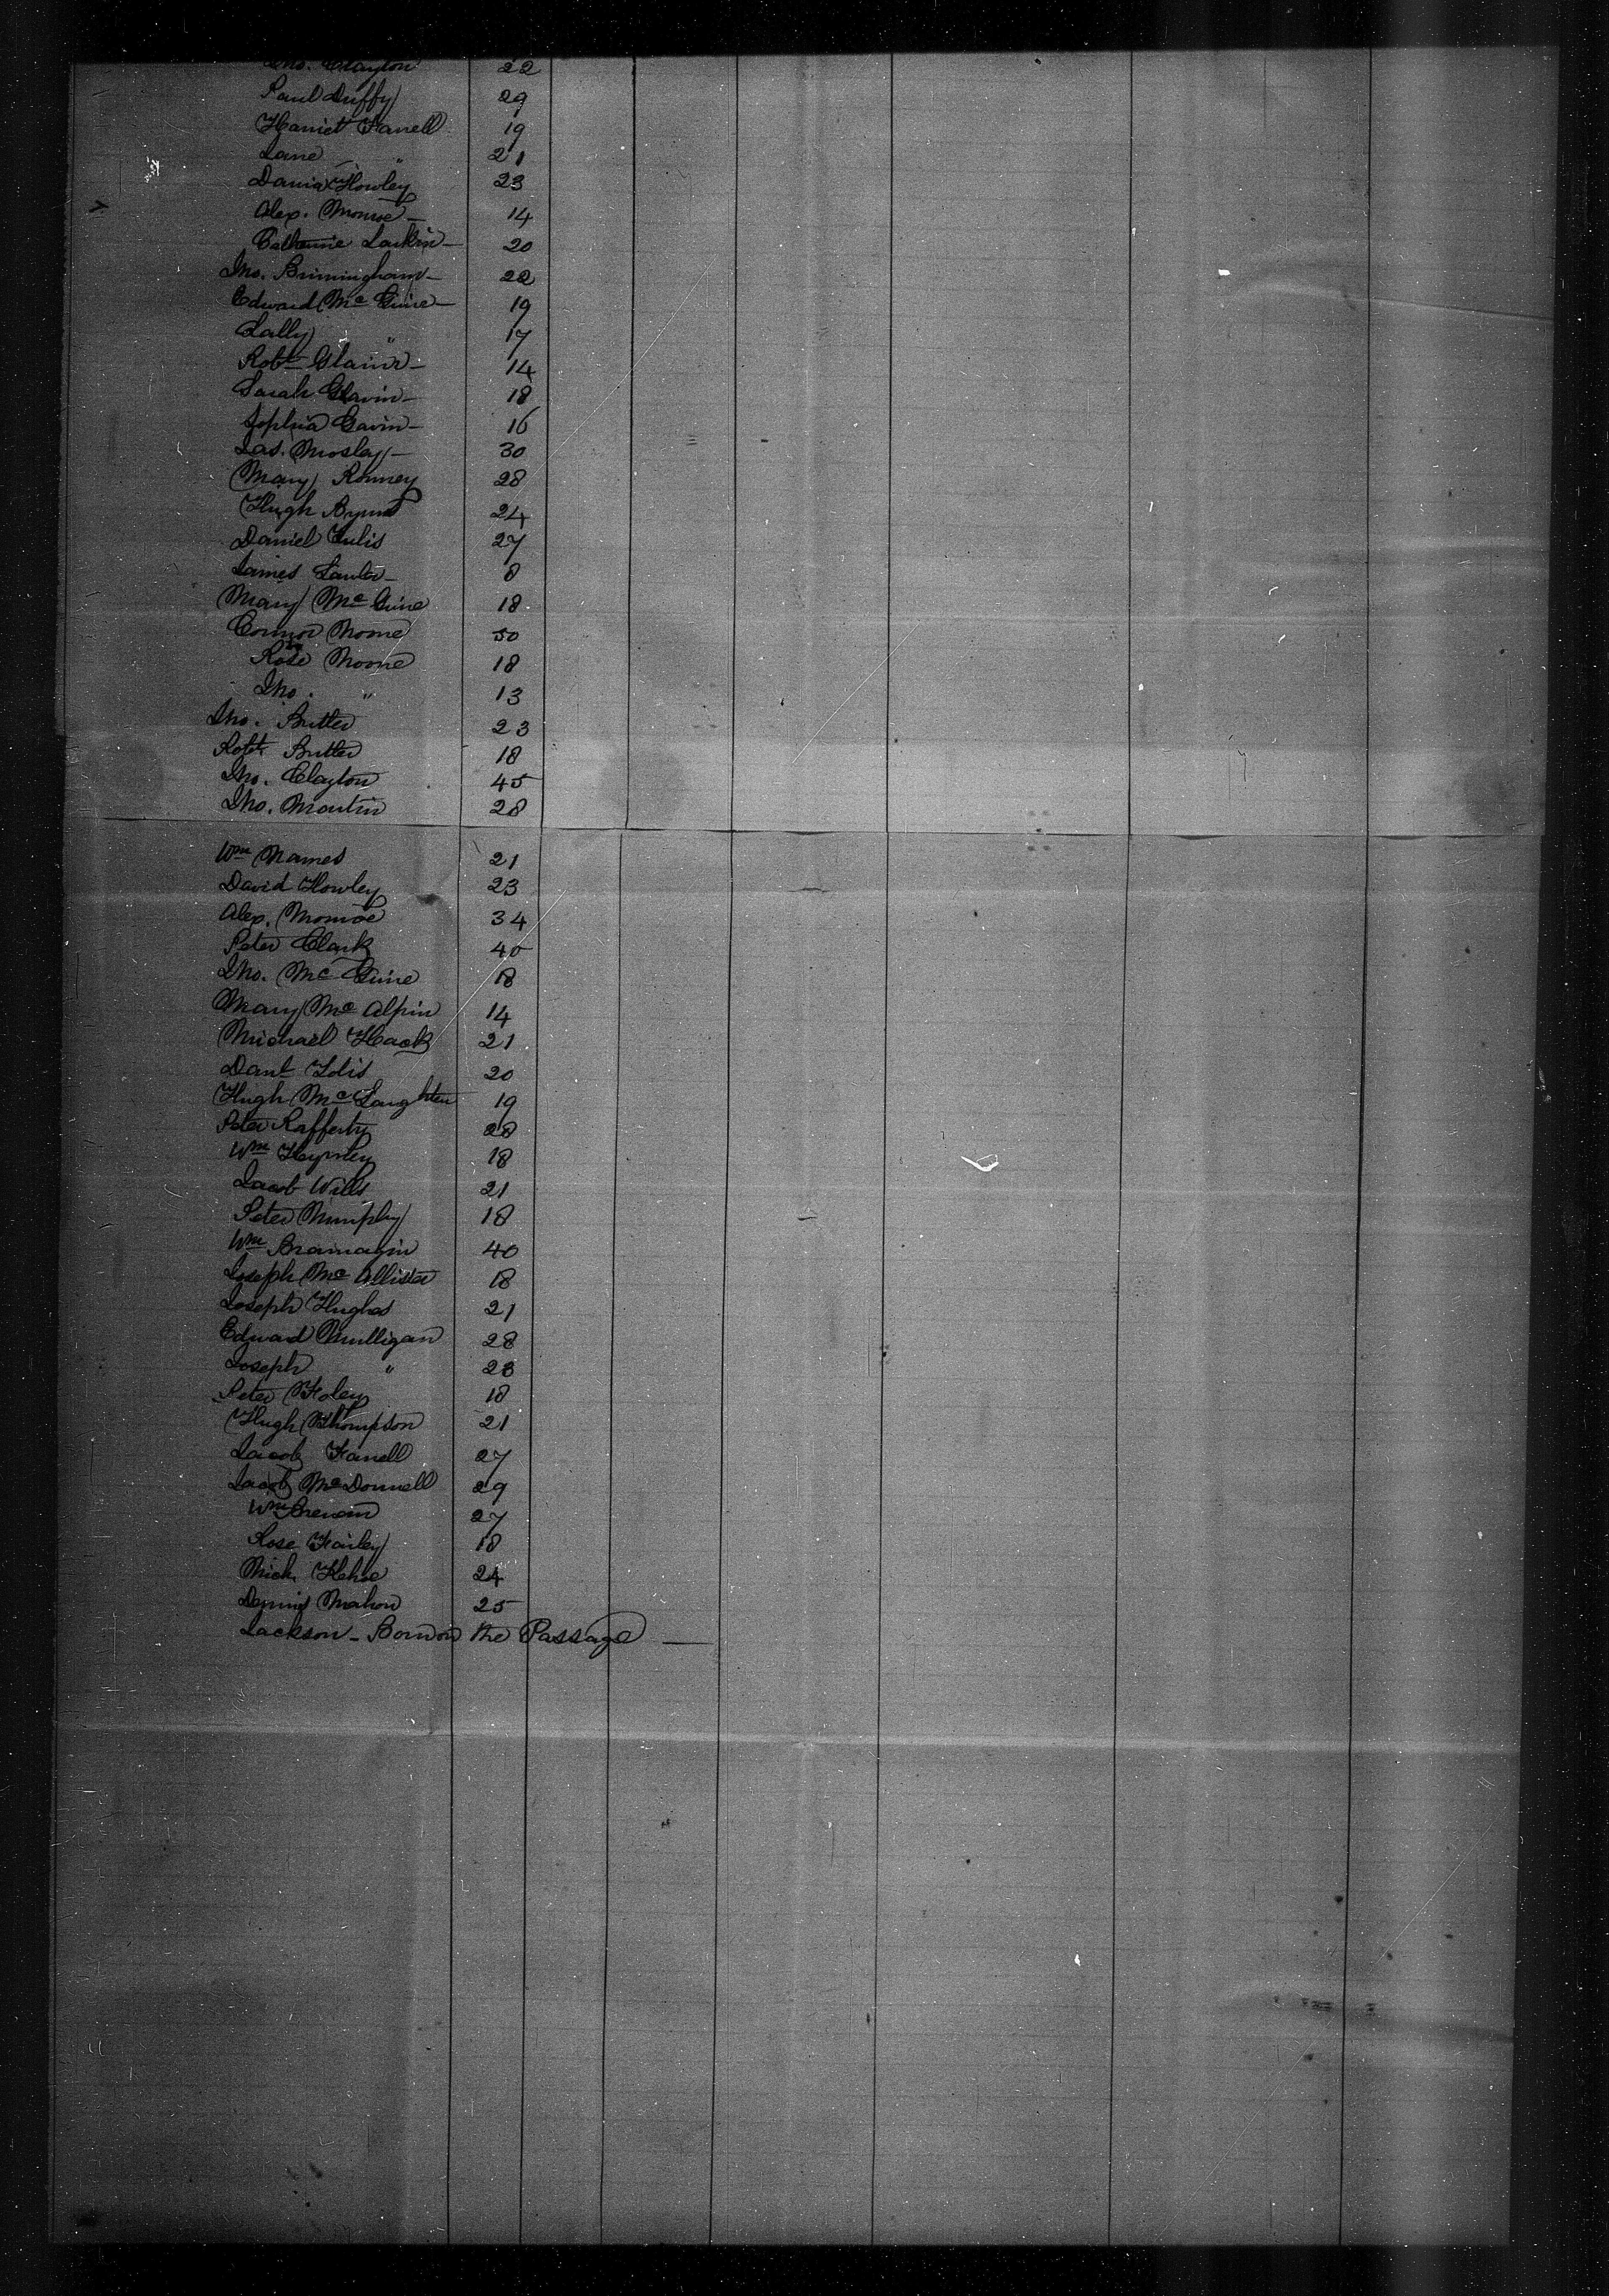 Jno. Clayton 22
Paul Duffy 29
Harriet Farrell 19
Jane " 21
Howley 23
Alex. Monroe - 14
Catherine Larkin - 20
Jno. Brimingham - 22
Edward Mc Guire - 19
Sally " 17
Robt 14
Sarah Gavin - 18
Sophia Gavin - 16
Jas. Mosley - 30
Mary Romney 28
Hugh Byrne 24
Daniel 27
James 8
Mary Mc Guire 18
Connor Moore 50
Rose Moore 18
Jno. " 13
Jno. Butler 23
Robt Butler 18
Jno. Clayton 45
Jno. Martin 28
Wm 21
David Howley 23
Alex. Monroe 34
Peter Clark 40
Jno. Mc Guire 18
Mary Mc Alpin 14
Michael Hack 21
Danl 20
Hugh Mc Laughten 19
Peter Rafferty 28
Wm 18
Jacob Wills 21
Peter Murphy 18
Wm 40
Joseph Mc Allister 18
Joseph Hughes 21
Edward Mulligan 28
Joseph " 23
Peter Foley 18
Hugh Thompson 21
Jacob Farrell 27
Jacob McDonnell 29
Wm 27
Rose Farley 18
Mich. Kehoe 24
Dennis Mahon 25
Jackson - Born on the Passage —